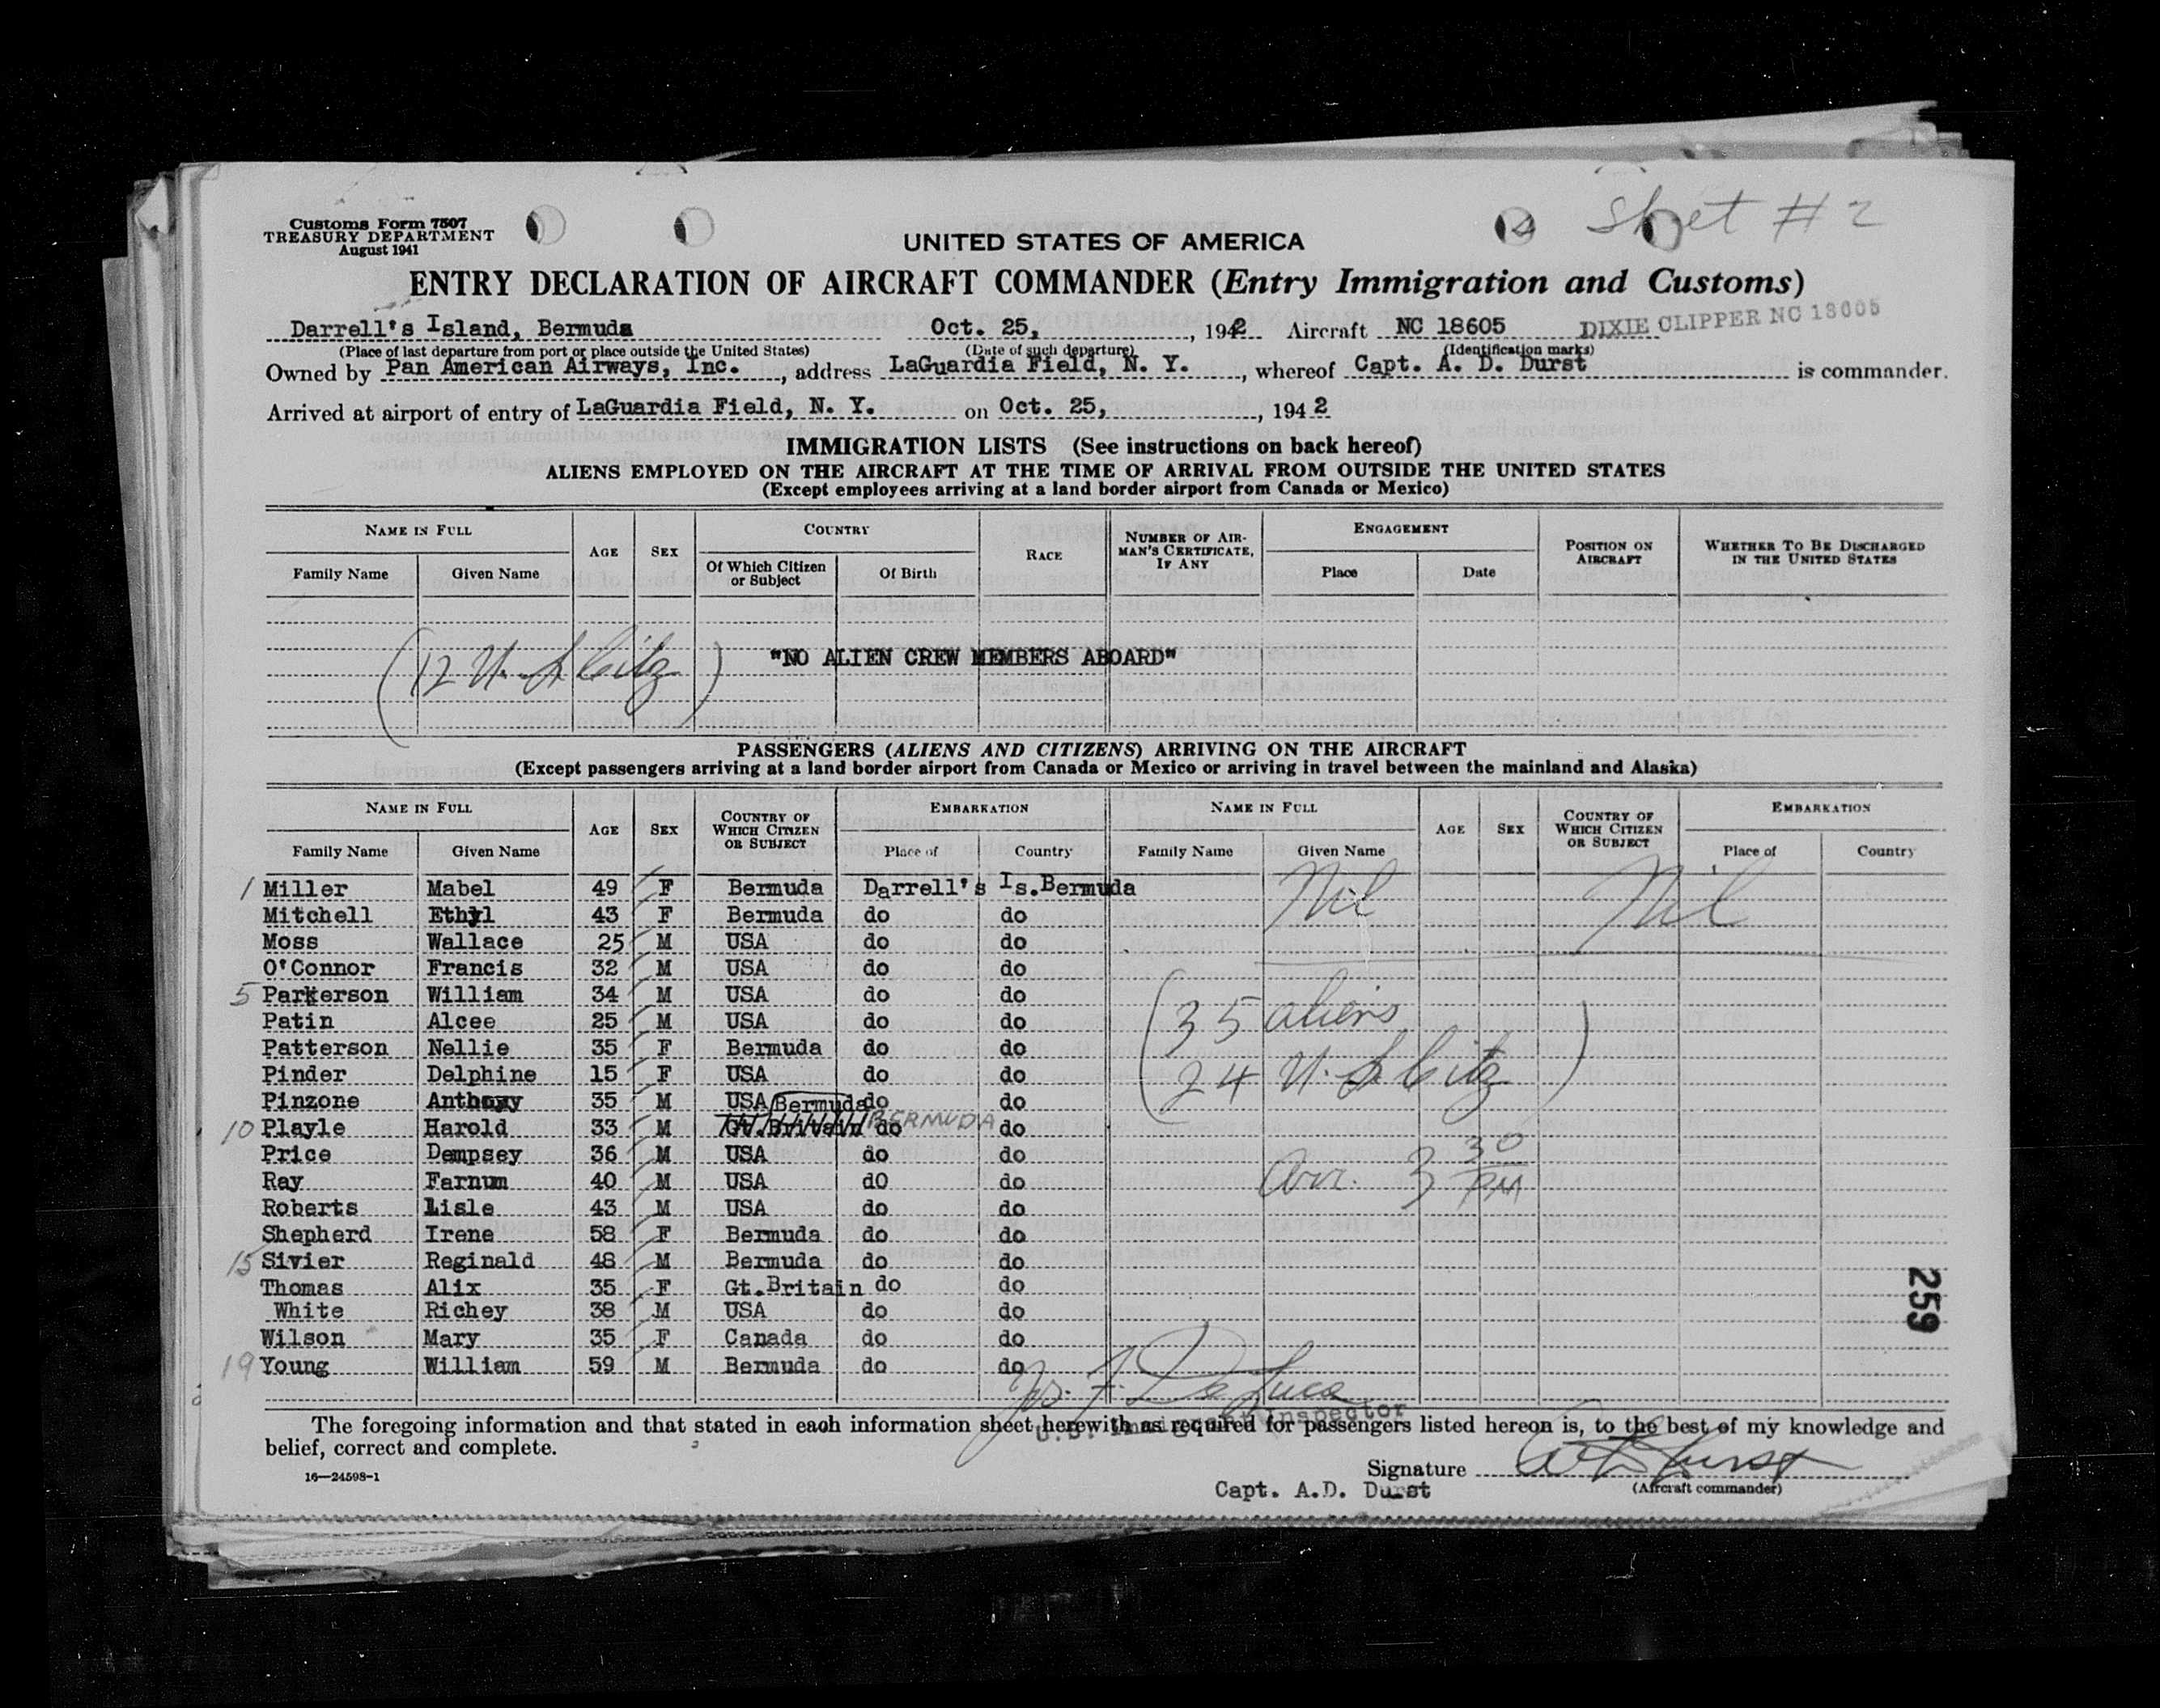 Customs Form 7507
TREASURY DEPARTMENT
August 1941
Sheet #2
UNITED STATES OF AMERICA
ENTRY DECLARATION OF AIRCRAFT COMMANDER (Entry Immigration and Customs)
Darrell's Island, Bermuda Oct. 25, 1942 Aircraft NC 18605 DIXIE CLIPPER NC 18605
(Place of last departure from port or place outside the United States) (Date of such departure) (Identification marks)
Owned by Pan American Airways, Inc., address LaGuardia Field, N. Y., whereof Capt. A. D. Durst is commander.
Arrived at airport of entry of LaGuardia Field, N. Y. on Oct. 25, 1942
IMMIGRATION LISTS (See instructions on back hereof)
ALIENS EMPLOYED ON THE AIRCRAFT AT THE TIME OF ARRIVAL FROM OUTSIDE THE UNITED STATES
(Except employees arriving at a land border airport from Canada or Mexico)
NAME IN FULL AGE SEX COUNTRY RACE NUMBER OF AIRMAN'S CERTIFICATE, IF ANY ENGAGEMENT POSITION ON AIRCRAFT WHETHER TO BE DISCHARGED IN THE UNITED STATES
Family Name Given Name Of Which Citizen or Subject Of Birth Place Date
(12 U.S. Citz) "NO ALIEN CREW MEMBERS ABOARD"
PASSENGERS (ALIENS AND CITIZENS) ARRIVING ON THE AIRCRAFT
(Except passengers arriving at a land border airport from Canada or Mexico or arriving in travel between the mainland and Alaska)
NAME IN FULL AGE SEX COUNTRY OF WHICH CITIZEN OR SUBJECT EMBARKATION NAME IN FULL AGE SEX COUNTRY OF WHICH CITIZEN OR SUBJECT EMBARKATION
Family Name Given Name Place of Country Family Name Given Name Place of Country
1 Miller Mabel 49 F Bermuda Darrell's Is. Bermuda Nil Nil
Mitchell Ethyl 43 F Bermuda do do
Moss Wallace 25 M USA do do
O'Connor Francis 32 M USA do do
5 Parkerson William 34 M USA do do (35 aliens
Patin Alcee 25 M USA do do
Patterson Nellie 35 F Bermuda do do 24 U.S. Citz)
Pinder Delphine 15 F USA do do
Pinzone Anthony 35 M USA Bermuda do do
10 Playle Harold 33 M Gt.Britain BERMUDA do do
Price Dempsey 36 M USA do do
Ray Farnum 40 M USA do do arr. 3 30 PM
Roberts Lisle 43 M USA do do
Shepherd Irene 58 F Bermuda do do
15 Sivier Reginald 48 M Bermuda do do
Thomas Alix 35 F Gt.Britain do do
White Richey 38 M USA do do
Wilson Mary 35 F Canada do do
19 Young William 59 M Bermuda do do
259
Jos. F. DeLuca
U.S. Immigrant Inspector
The foregoing information and that stated in each information sheet herewith as required for passengers listed hereon is, to the best of my knowledge and
belief, correct and complete.
16—24598-1
Signature A D Durst
Capt. A.D. Durst (Aircraft commander)